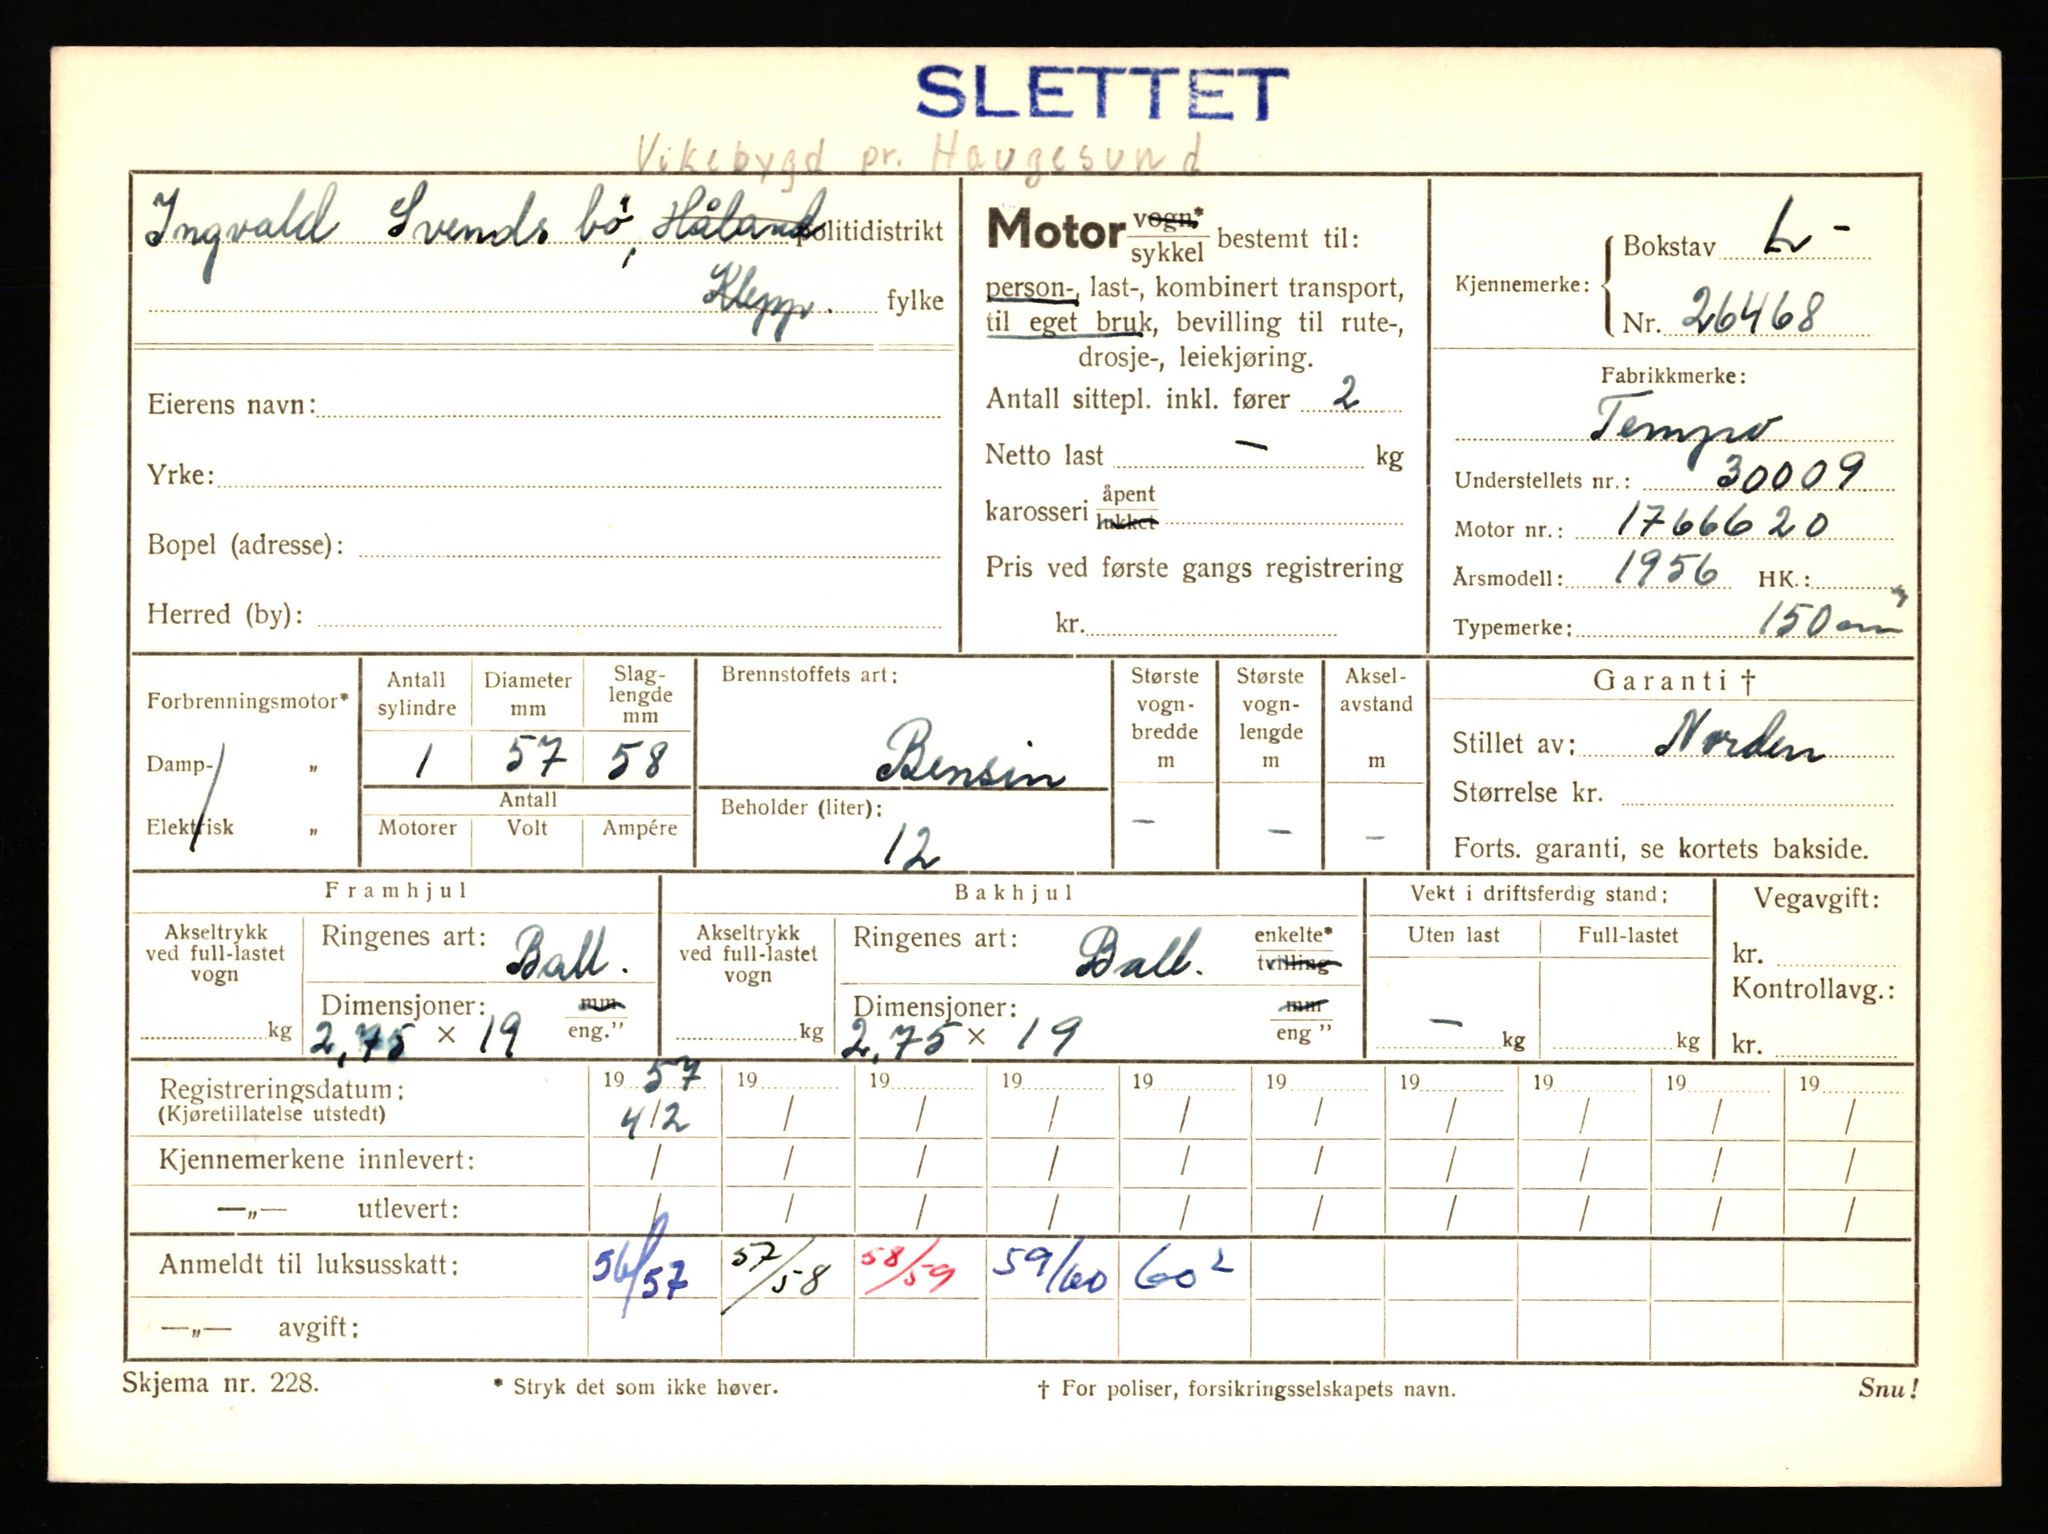 SLETTET
Vikebygd pr. Haugesund
Ingvald Svendsbö, Håland politidistrikt
Klepp. fylke
Eierens navn:
Yrke:
Bopel (adresse):
Herred (by):
Motor vogn* / sykkel bestemt til:
person-, last-, kombinert transport,
til eget bruk, bevilling til rute-,
drosje-, leiekjøring.
Antall sittepl. inkl. fører 2
Netto last — kg
karosseri åpent / lukket
Pris ved første gangs registrering
kr.
Kjennemerke: Bokstav L-
Nr. 26468
Fabrikkmerke:
Tempo
Understellets nr.: 30009
Motor nr.: 1766620
Årsmodell: 1956 HK.:
Typemerke: 150 cm³
Forbrenningsmotor*
Damp- „
Elektrisk „
Antall sylindre 1
Diameter mm 57
Slag-lengde mm 58
Antall
Motorer Volt Ampére
Brennstoffets art:
Bensin
Beholder (liter):
12
Største vogn-bredde m —
Største vogn-lengde m —
Aksel-avstand m —
Garanti †
Stillet av: Norden
Størrelse kr.
Forts. garanti, se kortets bakside.
Framhjul
Akseltrykk ved full-lastet vogn kg
Ringenes art: Ball.
Dimensjoner: mm / eng."
2,75 × 19
Bakhjul
Akseltrykk ved full-lastet vogn kg
Ringenes art: Ball. enkelte* / tvilling
Dimensjoner: mm / eng "
2,75 × 19
Vekt i driftsferdig stand:
Uten last Full-lastet
— kg kg
Vegavgift:
kr.
Kontrollavg.:
kr.
Registreringsdatum: 19 57 19 19 19 19 19 19 19 19 19
(Kjøretillatelse utstedt) 4/2 / / / / / / / / /
Kjennemerkene innlevert: / / / / / / / / / /
—„— utlevert: / / / / / / / / / /
Anmeldt til luksusskatt: 56/57 57/58 58/59 59/60 60²
—„— avgift:
Skjema nr. 228. * Stryk det som ikke høver. † For poliser, forsikringsselskapets navn. Snu!